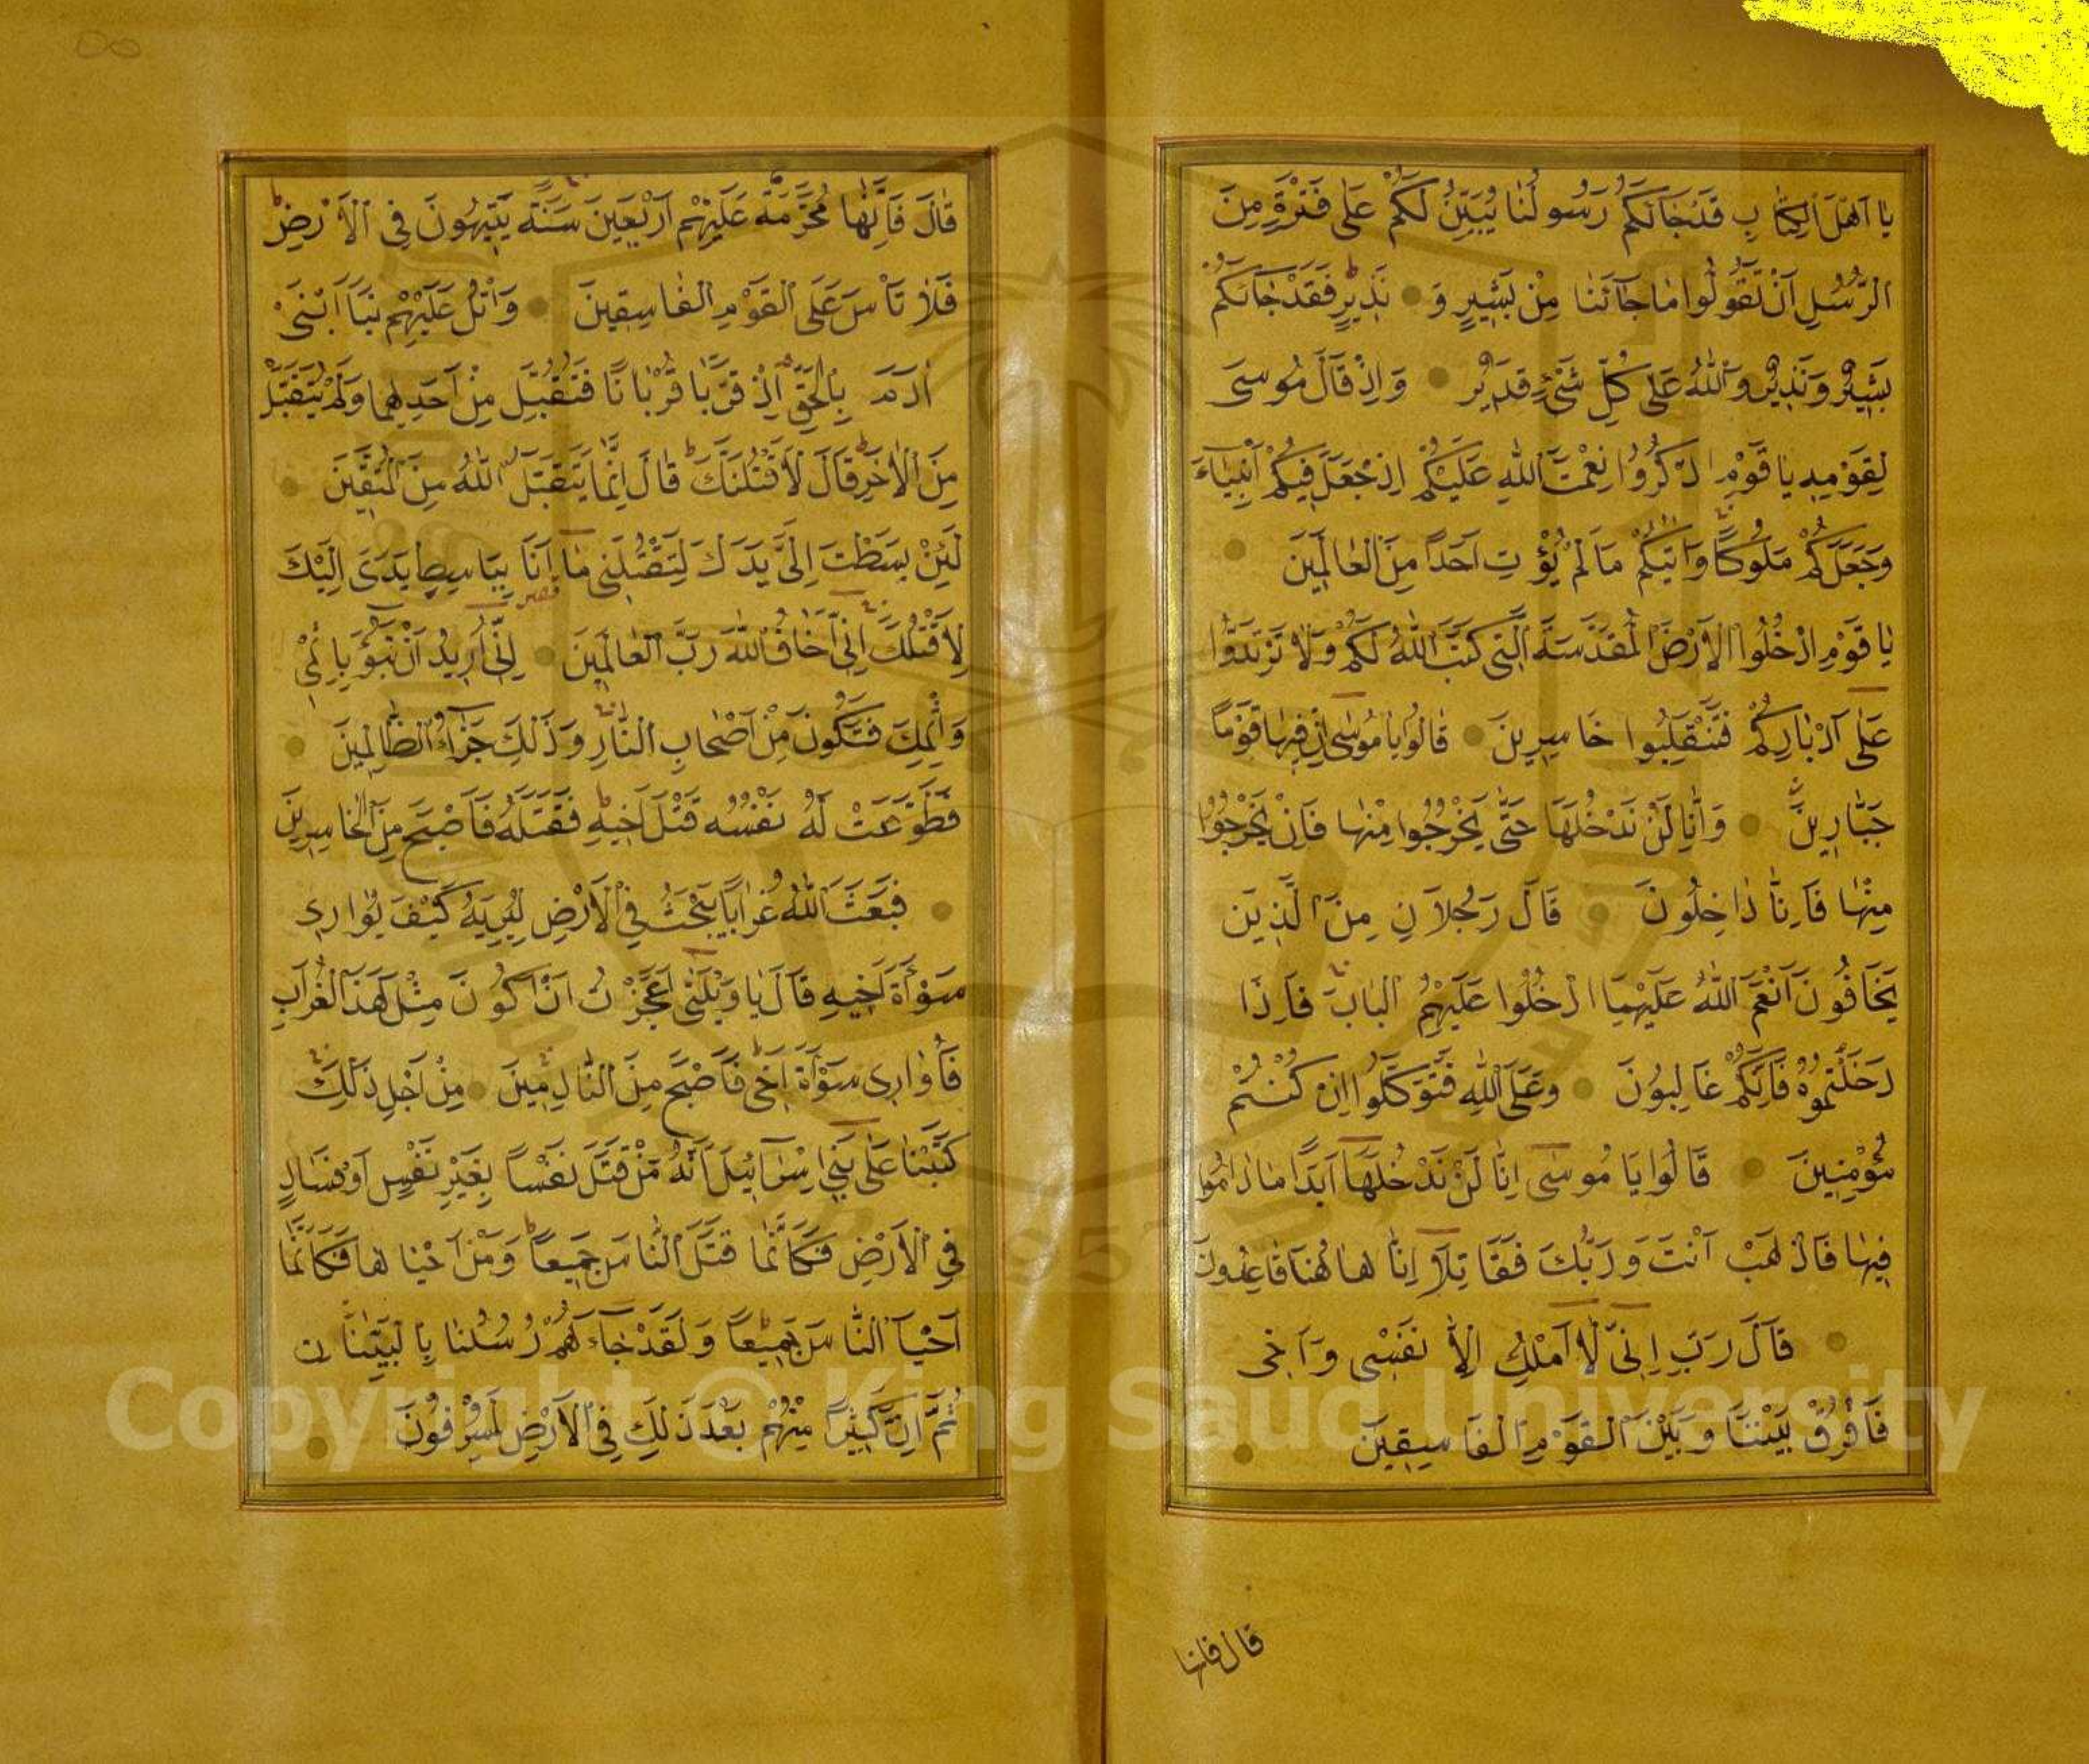 يَا اَهْلَ الْكِتَابِ قَدْ جَاۤئَكُمْ رَسُولُنَا يُبَيِّنُ لَكُمْ عَلٰى فَتْرَةٍ مِنَ
الرُّسُلِ اَنْ تَقُولُوا مَا جَاۤئَنَا مِنْ بَشِيرٍ وَ نَذِيرٍ فَقَدْ جَاۤئَكُمْ
بَشِيرٌ وَنَذِيرٌ وَاللّٰهُ عَلٰى كُلِّ شَىْءٍ قَدِيرٌ وَاِذْ قَالَ مُوسَى
لِقَوْمِهِ يَا قَوْمِ اذْكُرُوا نِعْمَتَ اللّٰهِ عَلَيْكُمْ اِذْ جَعَلَ فِيكُمْ اَنْبِيَاۤءَ
وَجَعَلَكُمْ مُلُوكًا وَاٰتٰيكُمْ مَا لَمْ يُؤْتِ اَحَدًا مِنَ الْعَالَمِينَ
يَا قَوْمِ ادْخُلُوا الْاَرْضَ الْمُقَدَّسَةَ الَّتِى كَتَبَ اللّٰهُ لَكُمْ وَلَا تَرْتَدُّوا
عَلٰى اَدْبَارِكُمْ فَتَنْقَلِبُوا خَاسِرِينَ قَالُوا يَا مُوسٰى اِنَّ فِيهَا قَوْمًا
جَبَّارِينَ وَاِنَّا لَنْ نَدْخُلَهَا حَتّٰى يَخْرُجُوا مِنْهَا فَاِنْ يَخْرُجُوا
مِنْهَا فَاِنَّا دَاخِلُونَ قَالَ رَجُلَانِ مِنَ الَّذِينَ
يَخَافُونَ اَنْعَمَ اللّٰهُ عَلَيْهِمَا ادْخُلُوا عَلَيْهِمُ الْبَابَ فَاِذَا
دَخَلْتُمُوهُ فَاِنَّكُمْ غَالِبُونَ وَعَلَى اللّٰهِ فَتَوَكَّلُوا اِنْ كُنْتُمْ
مُؤْمِنِينَ قَالُوا يَا مُوسٰى اِنَّا لَنْ نَدْخُلَهَا اَبَدًا مَا دَامُوا
فِيهَا فَاذْهَبْ اَنْتَ وَرَبُّكَ فَقَاتِلَا اِنَّا هَاهُنَا قَاعِدُونَ
قَالَ رَبِّ اِنِّى لَا اَمْلِكُ اِلَّا نَفْسِى وَاَخِى
فَافْرُقْ بَيْنَنَا وَبَيْنَ الْقَوْمِ الْفَاسِقِينَ
قال فانها
قَالَ فَاِنَّهَا مُحَرَّمَةٌ عَلَيْهِمْ اَرْبَعِينَ سَنَةً يَتِيهُونَ فِى الْاَرْضِ
فَلَا تَاْسَ عَلَى الْقَوْمِ الْفَاسِقِينَ وَاتْلُ عَلَيْهِمْ نَبَاَ ابْنَىْ
اٰدَمَ بِالْحَقِّ اِذْ قَرَّبَا قُرْبَانًا فَتُقُبِّلَ مِنْ اَحَدِهِمَا وَلَمْ يُتَقَبَّلْ
مِنَ الْاٰخَرِ قَالَ لَاَقْتُلَنَّكَ قَالَ اِنَّمَا يَتَقَبَّلُ اللّٰهُ مِنَ الْمُتَّقِينَ
لَئِنْ بَسَطْتَ اِلَىَّ يَدَكَ لِتَقْتُلَنِى مَا اَنَا بِبَاسِطٍ يَدِىَ اِلَيْكَ
لِاَقْتُلَكَ اِنِّى اَخَافُ اللّٰهَ رَبَّ الْعَالَمِينَ اِنِّى اُرِيدُ اَنْ تَبُوۤءَ بِاِثْمِى
وَاِثْمِكَ فَتَكُونَ مِنْ اَصْحَابِ النَّارِ وَذٰلِكَ جَزٰۤؤُا الظَّالِمِينَ
فَطَوَّعَتْ لَهُ نَفْسُهُ قَتْلَ اَخِيهِ فَقَتَلَهُ فَاَصْبَحَ مِنَ الْخَاسِرِينَ
فَبَعَثَ اللّٰهُ غُرَابًا يَبْحَثُ فِى الْاَرْضِ لِيُرِيَهُ كَيْفَ يُوَارِى
سَوْاَةَ اَخِيهِ قَالَ يَا وَيْلَتٰى اَعَجَزْتُ اَنْ اَكُونَ مِثْلَ هٰذَا الْغُرَابِ
فَاُوَارِىَ سَوْاَةَ اَخِى فَاَصْبَحَ مِنَ النَّادِمِينَ مِنْ اَجْلِ ذٰلِكَ
كَتَبْنَا عَلٰى بَنِى اِسْرَاۤئِيلَ اَنَّهُ مَنْ قَتَلَ نَفْسًا بِغَيْرِ نَفْسٍ اَوْ فَسَادٍ
فِى الْاَرْضِ فَكَاَنَّمَا قَتَلَ النَّاسَ جَمِيعًا وَمَنْ اَحْيَاهَا فَكَاَنَّمَا
اَحْيَا النَّاسَ جَمِيعًا وَلَقَدْ جَاۤءَتْهُمْ رُسُلُنَا بِالْبَيِّنَاتِ
ثُمَّ اِنَّ كَثِيرًا مِنْهُمْ بَعْدَ ذٰلِكَ فِى الْاَرْضِ لَمُسْرِفُونَ
Copyright © King Saud University